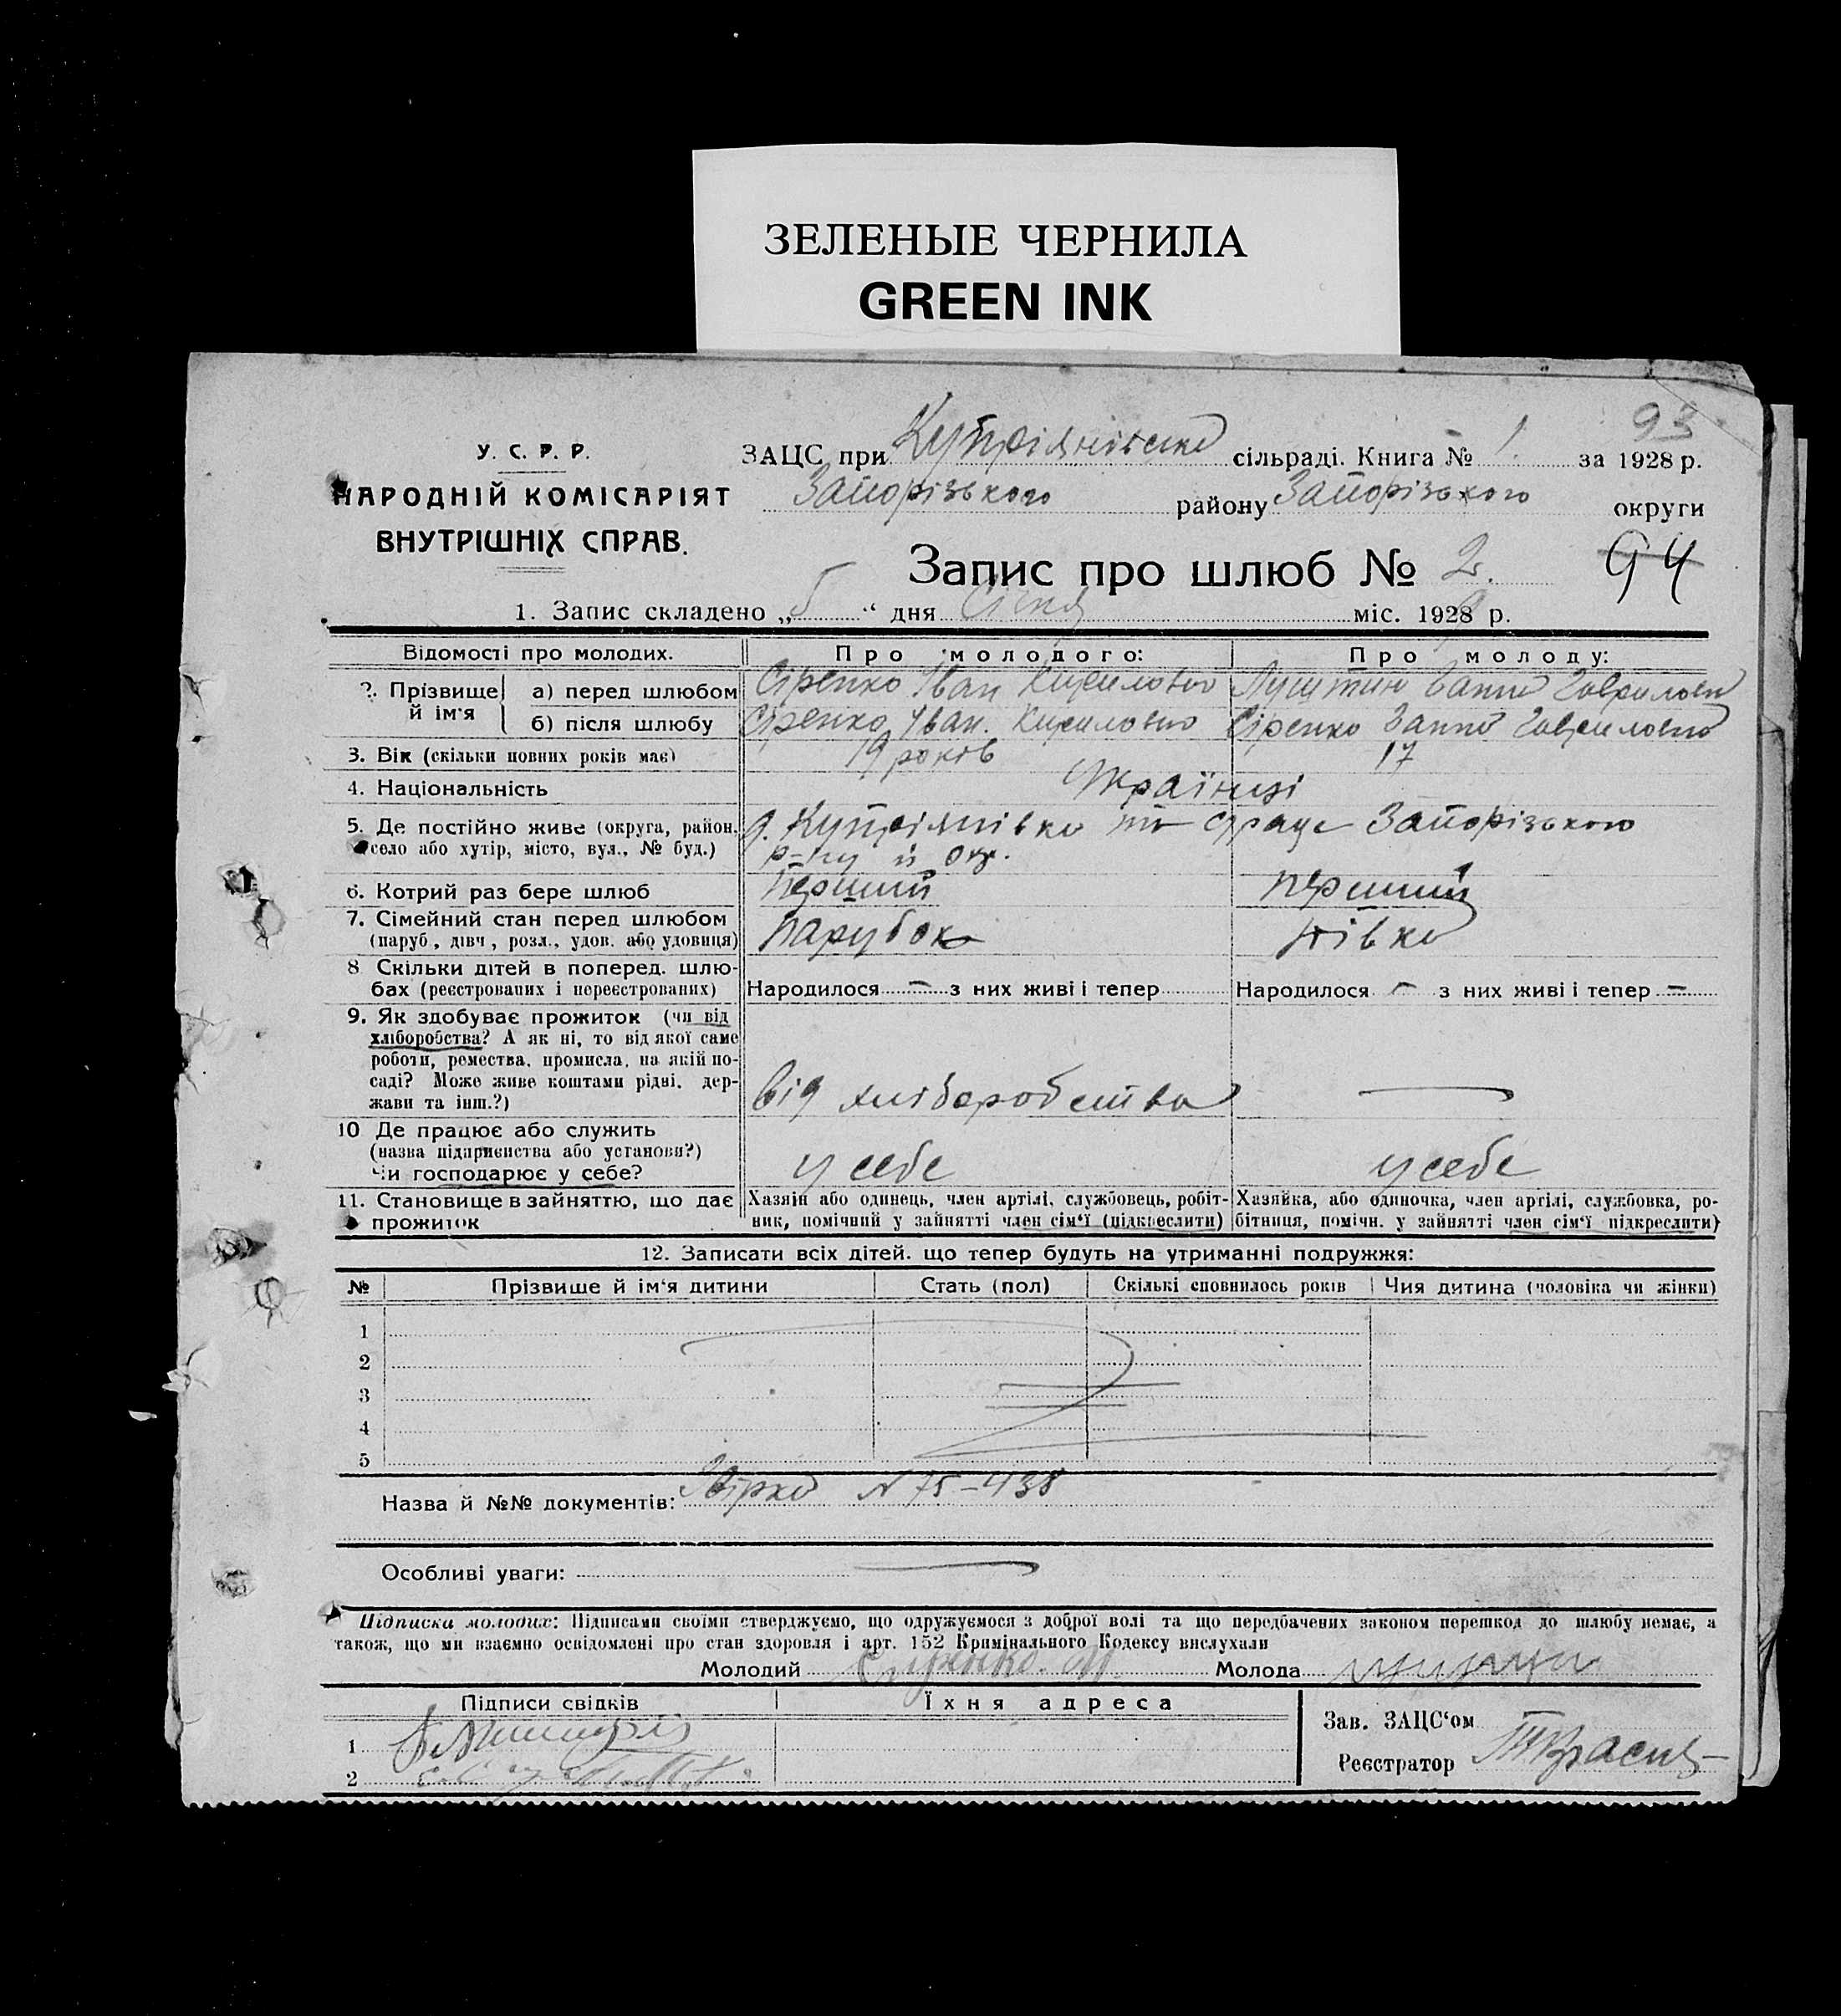 ЗЕЛЕНЫЕ ЧЕРНИЛА
GREEN INK
93
У. С. Р. Р.
НАРОДНІЙ КОМІСАРІЯТ
ВНУТРІШНІХ СПРАВ.
ЗАЦС при Купріянівське сільраді. Книга № 1. за 1928 р.
Запорізького району Запорізького округи
Запис про шлюб № 2. 94
1. Запис складено „5“ дня Січня міс. 1928 р.
Відомості про молодих. Про молодого: Про молоду:
2. Прізвище й ім'я
а) перед шлюбом Сіренко Іван Кирилович
б) після шлюбу Сіренко Іван. Кирилович Сіренко Ганна Гавриловна
3. Вік (скільки повних років має) 19 років 17
4. Національність Українці
5. Де постійно живе (округа, район, село або хутір, місто, вул., № буд.) Запорізького
р-ну й окр.
6. Котрий раз бере шлюб перший перший
7. Сімейний стан перед шлюбом
(паруб, дівч, розл., удов. або удовиця) парубок дівка
8 Скільки дітей в поперед. шлю-
бах (реєстрованих і нереєстрованих) Народилося — з них живі і тепер Народилося — з них живі і тепер —
9. Як здобуває прожиток (чи від
хліборобства? А як ні, то від якої саме
роботи, ремества, промисла, на якій по-
саді? Може живе коштами рідні, дер-
жави та інш.?) від хліборобства —
10 Де працює або служить
(назва підприємства або установи?)
Чи господарює у себе? у себе у себе
11. Становище в зайняттю, що дає прожиток
Хазяїн або одинець, член артілі, службовець, робіт-
ник, помічний у зайнятті член сім'ї (підкреслити)
Хазяйка, або одиночка, член артілі, службовка, ро-
бітниця, помічн. у зайнятті член сім'ї підкреслити)
12. Записати всіх дітей. що тепер будуть на утриманні подружжя:
№ Прізвище й ім'я дитини Стать (пол) Скількі сповнилось років Чия дитина (чоловіка чи жінки)
1
2
3
4
5
Назва й №№ документів: N 75-438
Особливі уваги: —
Підписка молодих: Підписами своїми стверджуємо, що одружуємося з доброї волі та що передбачених законом перешкод до шлюбу немає, а
також, що ми взаємно освідомлені про стан здоровля і арт. 152 Кримінального Кодексу вислухали
Молодий Молода
Підписи свідків Їхня адреса
Зав. ЗАЦС'ом
1
Реєстратор
2